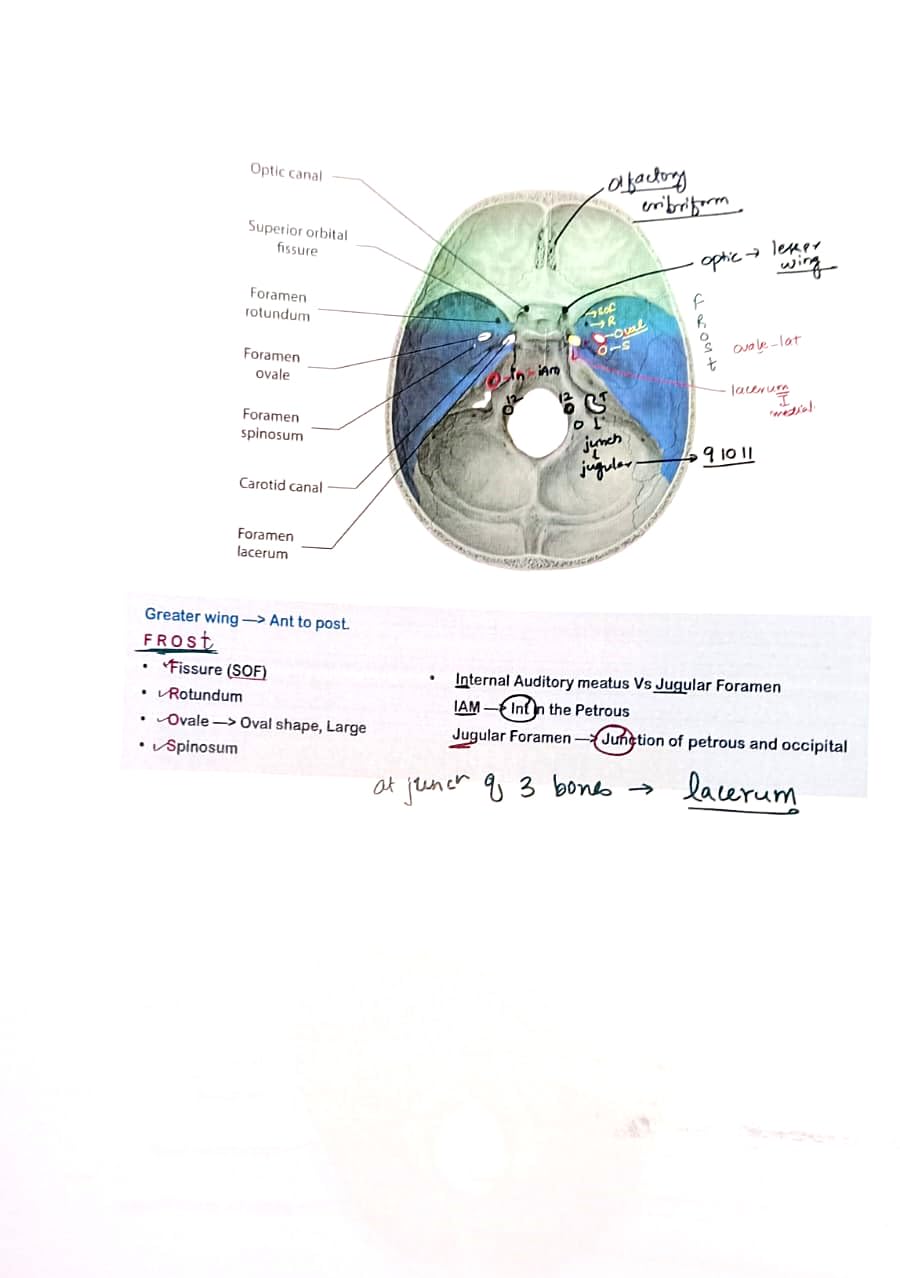 Optic canal
Superior orbital
fissure
Foramen
rotundum
Foramen
ovale
Foramen
spinosum
Carotid canal
Foramen
lacerum
olfactory
cribriform
optic → lesser
wing
F
R
O
S
t
→ SOF
→ R
- oval
O - S
ovale - lat
lacerum
medial
In - iAm
12
12
junch
jugular
9 10 11
Greater wing —> Ant to post.
FROSt
• Fissure (SOF)
• Rotundum
• Ovale —> Oval shape, Large
• Spinosum
• Internal Auditory meatus Vs Jugular Foramen
IAM —> Int In the Petrous
Jugular Foramen —> Junction of petrous and occipital
at junch of 3 bones → lacerum